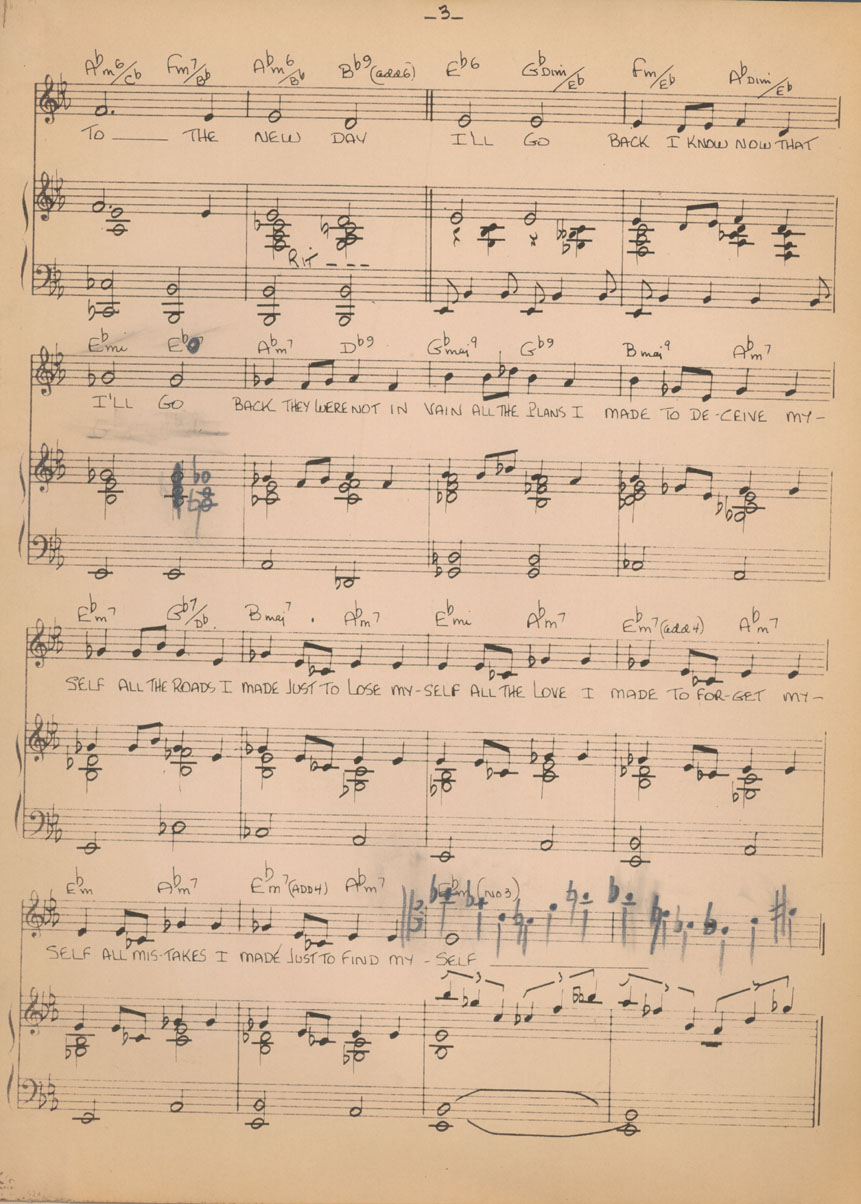 -3-
A♭m6/C♭ Fm7/B♭ A♭m6/B♭ B♭9(add6) E♭6 G♭Dim/E♭ Fm/E♭ A♭Dim/E♭
TO ____ THE NEW DAY I'LL GO BACK I KNOW NOW THAT
Rit _ _ _
E♭mi A♭m7 D♭9 G♭maj9 G♭9 Bmaj9 A♭m7
I'LL GO BACK THEY WERE NOT IN VAIN ALL THE PLANS I MADE TO DE-CEIVE MY-
E♭m7 G♭7/D♭ Bmaj7 A♭m7 E♭mi A♭m7 E♭m7(add4) A♭m7
SELF ALL THE ROADS I MADE JUST TO LOSE MY-SELF ALL THE LOVE I MADE TO FOR-GET MY-
E♭m A♭m7 E♭m7(ADD4) A♭m7 E♭m(NO3)
SELF ALL MIS-TAKES I MADE JUST TO FIND MY-SELF ____